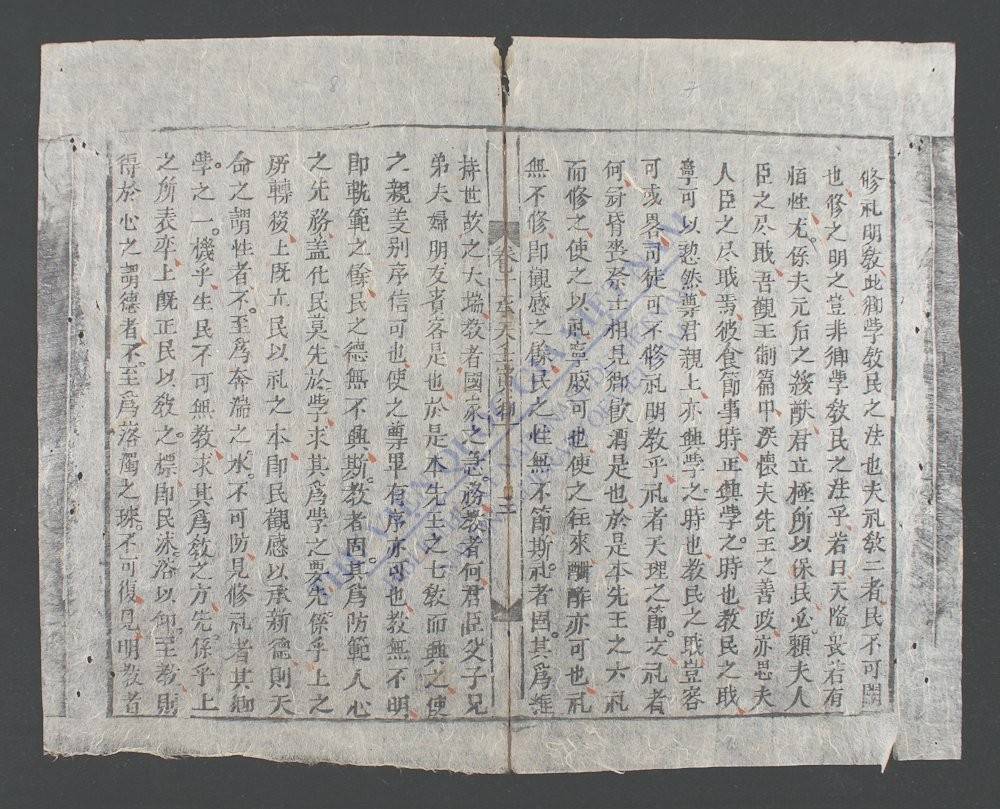 修礼明教此鄉学教民之法也夫礼教二者民不可闕
也修之明之豈非鄉學教民之法乎若曰天隲喪若有
恒性尤係夫元后之綏猷君立極所以保民必賴夫人
臣之尽戢吾観王制篇中深懐夫先王之善政亦思夫
人臣之尽戢焉彼食節事時正興学之時也教民之戢
寧可以恝然尊君親上亦興学之時也教民之戢豈容
可或畧可徒可不修礼明教乎礼者天理之節文礼者
何冠昏喪祭士相見鄉飲酒是也於是本先王之六礼
而修之使之以礼寧戚可也使之往來酬酢亦可也礼
無不修即観感之係民之性無不節斯礼者固其為維
卷 三
持世故之大端教者國家之急務教者何君臣父子兄
弟夫婦朋友賓客是也於是本先王之七教而興之使
之親义别序信可也使之尊卑有序亦可也教無不明
即軌範之係民之德無不興斯教者固其為防範人心
之先務盖化民莫先於学求其為学之要尤係乎上之
所轉移上既立民以礼之本即民觀感以承新德則天
命之謂性者不至為奔湍之水不可防見修礼者其鄉
學之一機乎生民不可無教求其為教之方完係乎上
之所表率上既正民以教之標即民沐浴以仰至教則
得於心之謂德者不至為落濁之珠不可復見明教者
8
7
THƯ VIỆN QUỐC GIA VIỆT NAM